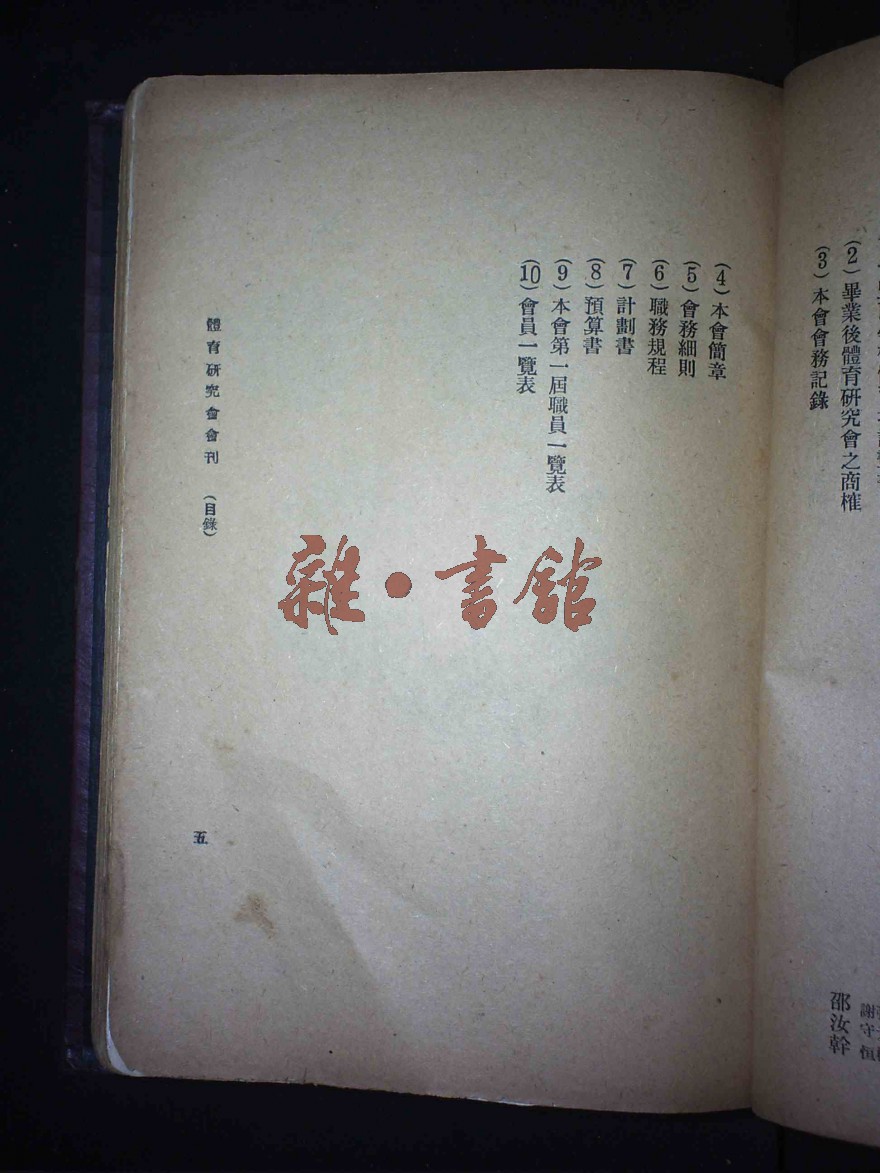 (2)畢業後體育研究會之商榷
謝守恒
邵汝幹
(3)本會會務記錄
(4)本會簡章
(5)會務細則
(6)職務規程
(7)計劃書
(8)預算書
(9)本會第一屆職員一覽表
(10)會員一覽表
體育研究會會刊 (目錄)
五
雜·書館